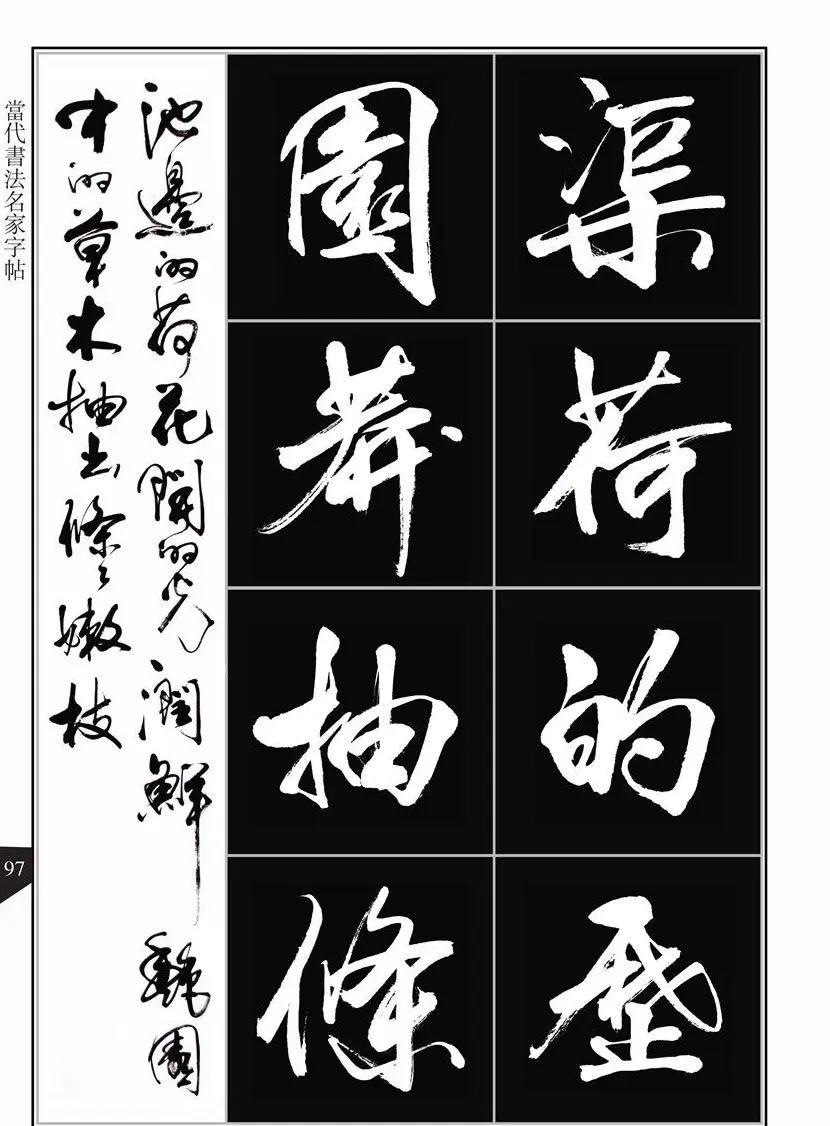 渠荷的歷
園莽抽條
池邊的荷花開的光潤鮮艷園
中的草木抽出條々嫩枝
當代書法名家字帖
97